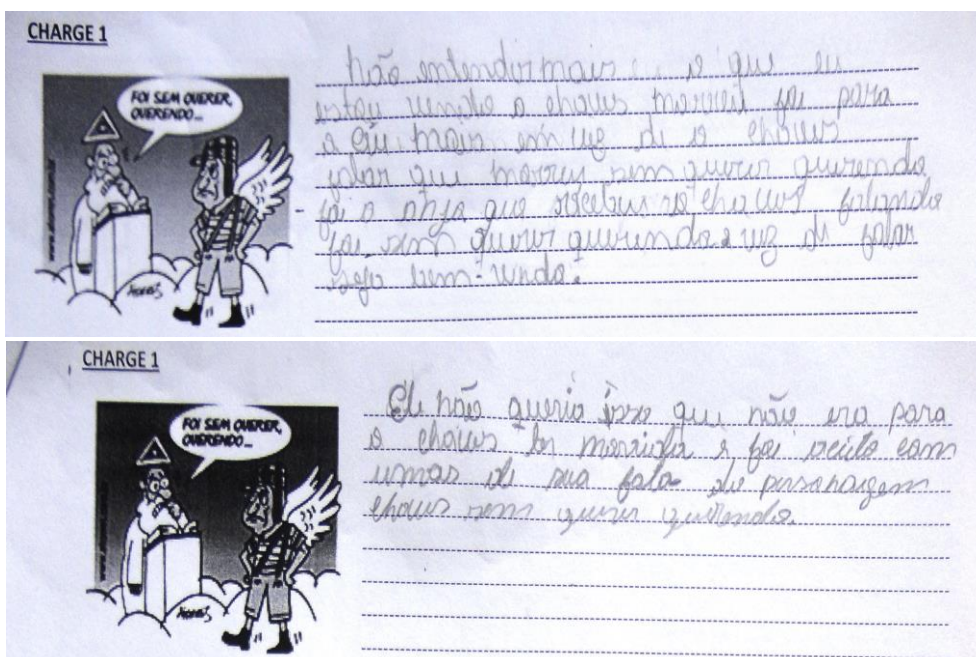 CHARGE 1
FOI SEM QUERER,
QUERENDO...
não entendir mais o que eu
estou vendo o chaves morreu foi para
o céu mais em vez de o chaves
falar que morreu sem querer querendo
foi o anja que recebeu o chaves falando
foi sem querer querendo e vez de falar
seja bem-vindo.
CHARGE 1
FOI SEM QUERER,
QUERENDO...
Ele não queria isso que não era para
o chaves ter morrido e foi com
umas de sua fala de personagem
chaves sem querer querendo.